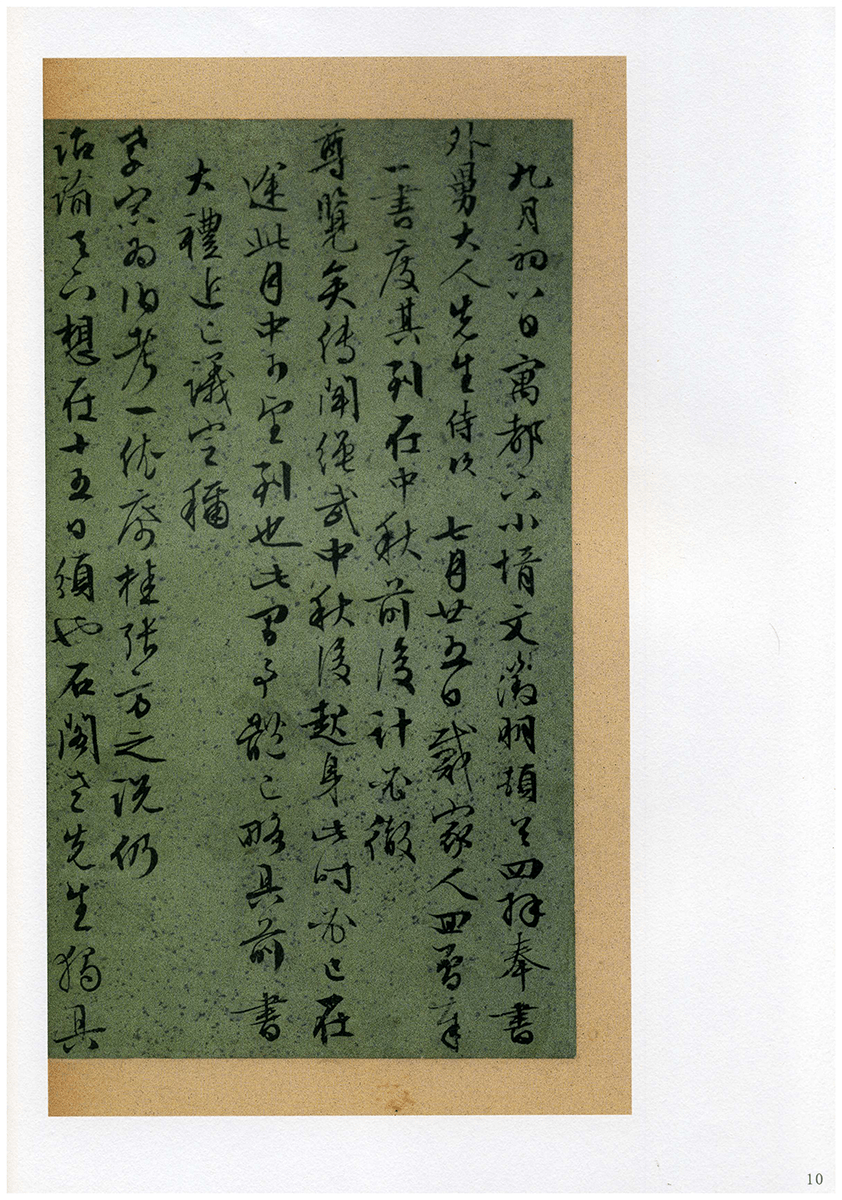 九月初八日寓都下小壻文徵明頓首四拜奉書
外舅大人先生侍次 七月廿五日戴家人回曾奉
一書度其到在中秋前後計必徹
尊覽矣傳聞繼武中秋後起身此時必已在
途此月中可望到也此間事體已略具前書
大禮近已議定稱
孝宗為伯考一依席桂張方之說仍
詔諭天下想在十五日頒也石閣老先生獨具
10